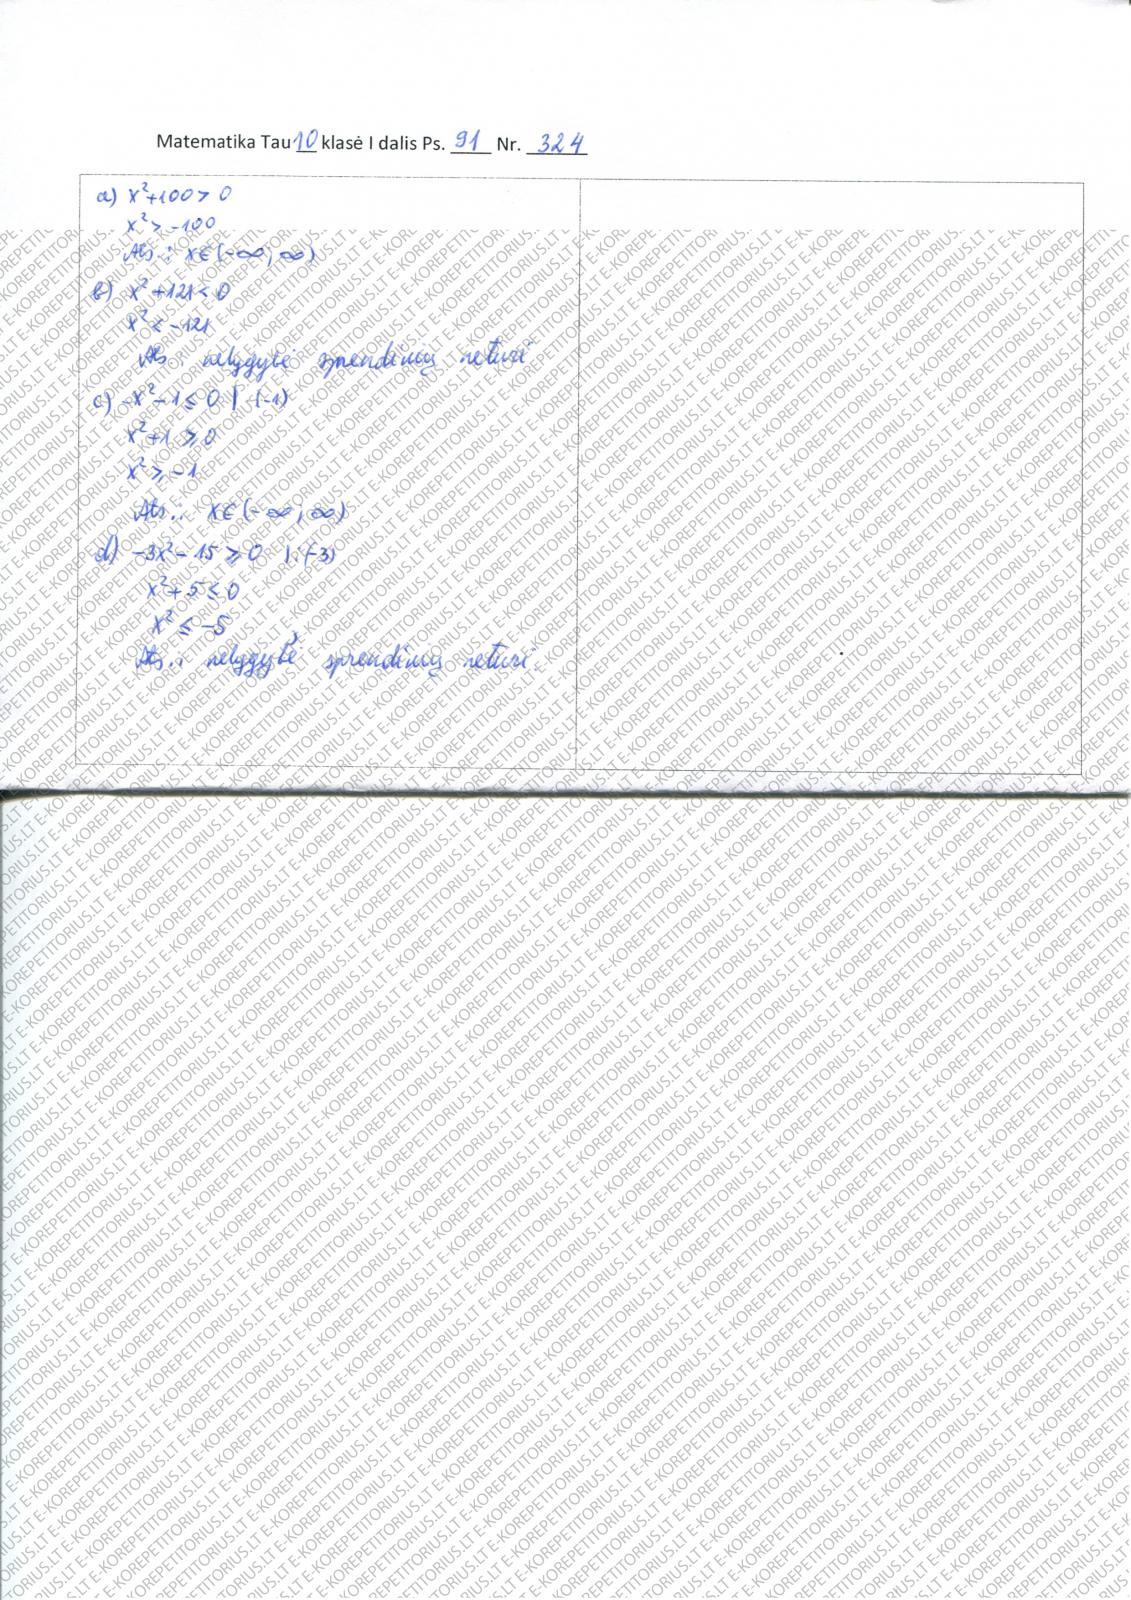 Matematika Tau 10 klasė I dalis Ps. 91 Nr. 324
a) x²+100 > 0
x² > -100
Ats.: x∈(-∞; ∞)
b) x²+121 < 0
x² < -121
Ats.: nelygybė sprendinių neturi
c) -x²-1 ≤ 0 | (-1)
x²+1 ≥ 0
x² ≥ -1
Ats.: x∈(-∞; ∞)
d) -3x²-15 ≥ 0 |:(-3)
x²+5 ≤ 0
x² ≤ -5
Ats.: nelygybė sprendinių neturi.
E-KOREPETITORIUS.LT